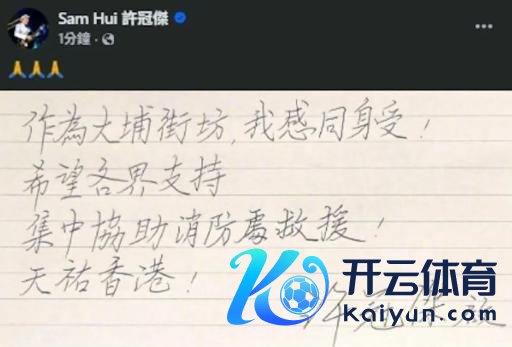 Sam Hui 許冠傑
1分鐘
作為大埔街坊,我感同身受!
希望各界支持
集中協助消防處救援!
天祐香港!
许冠傑
开云体育
kaiyun.com